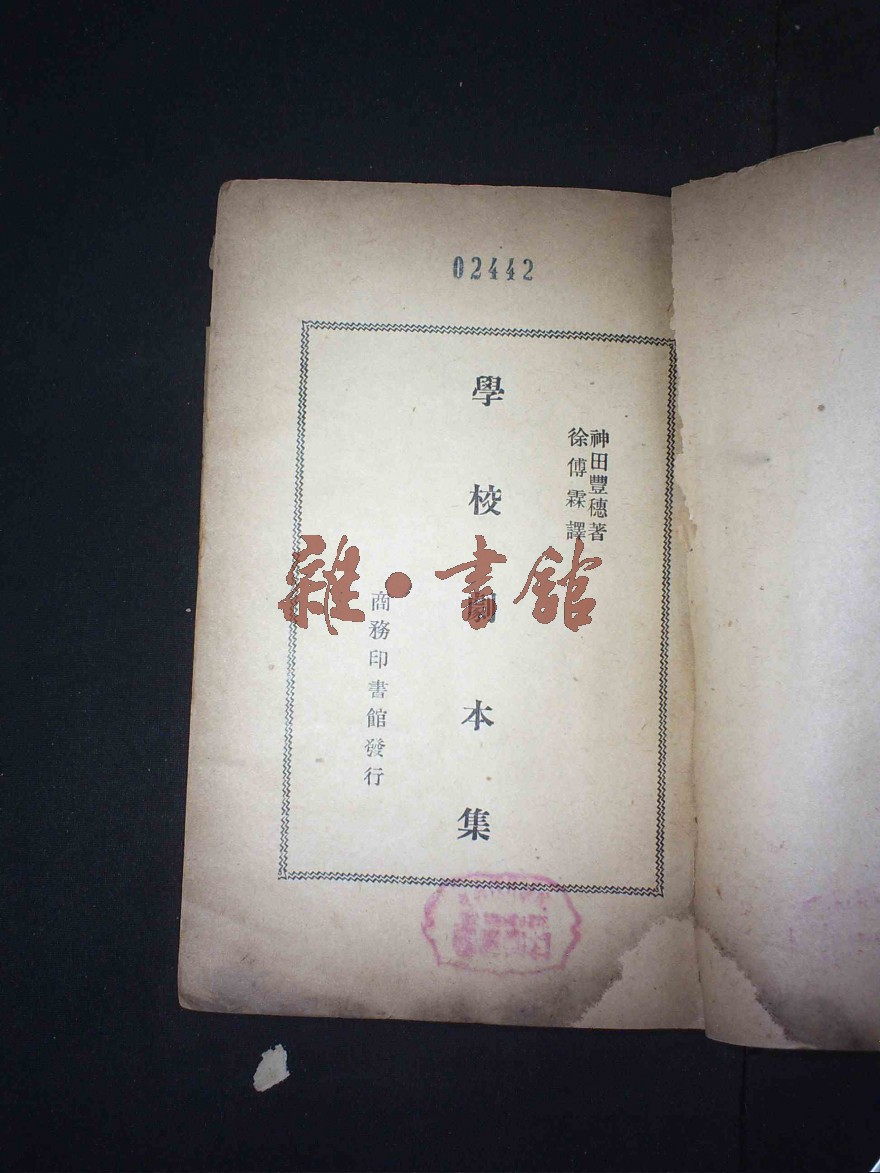 02442
神田豐穗著
徐傅霖譯
學校劇本集
商務印書館發行
雜·書館